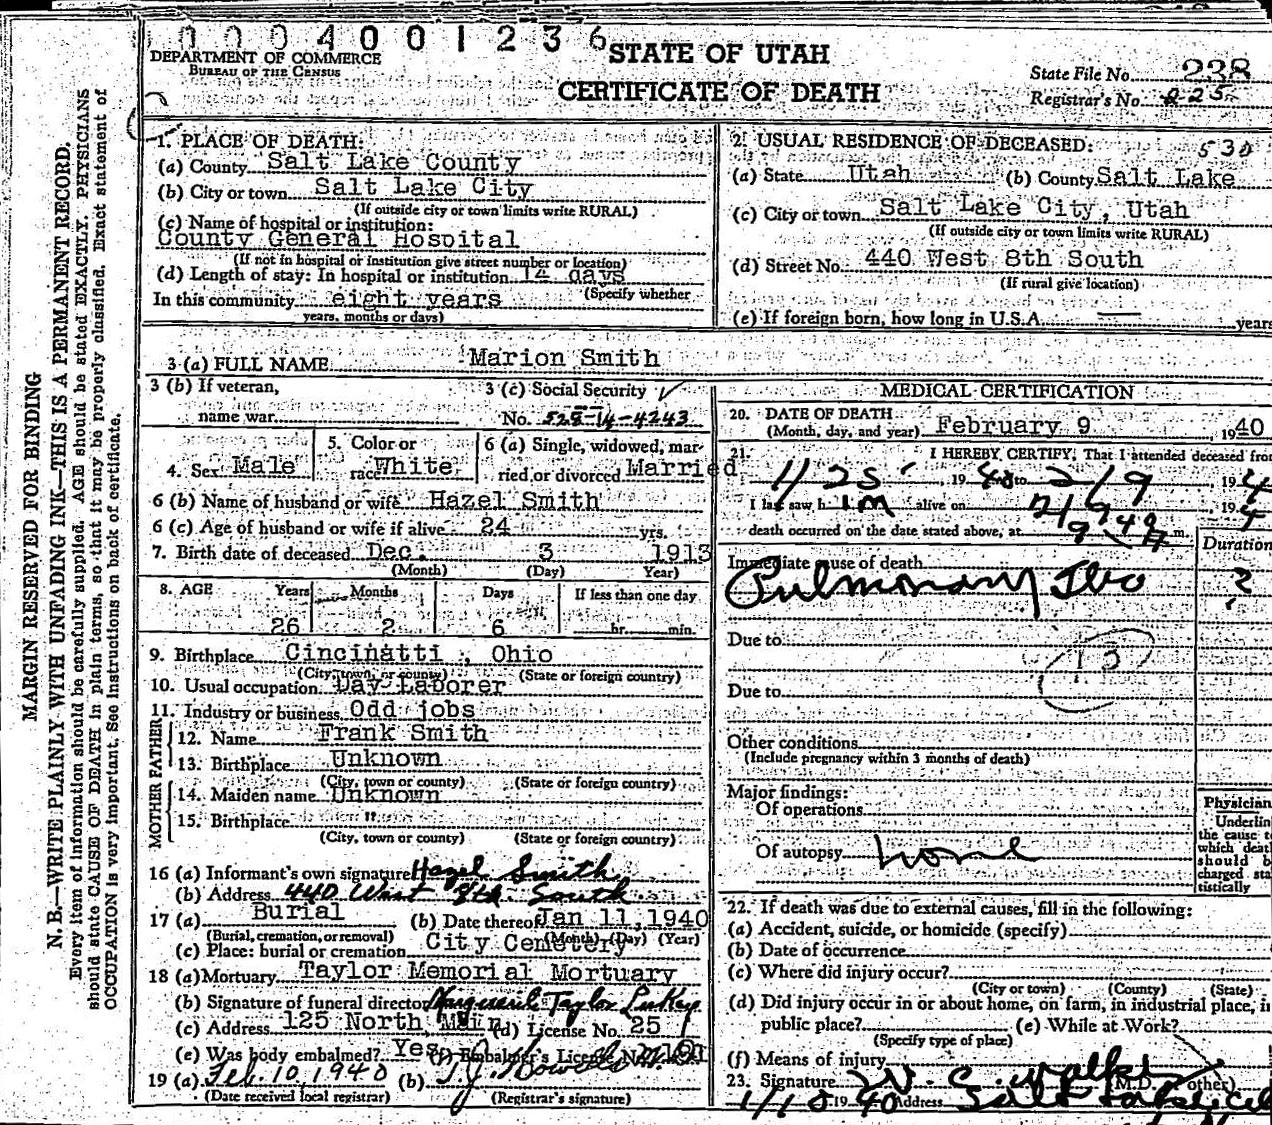 0004001236
DEPARTMENT OF COMMERCE
BUREAU OF THE CENSUS
STATE OF UTAH
CERTIFICATE OF DEATH
State File No. 238
Registrar's No. 225
MARGIN RESERVED FOR BINDING
N. B.—WRITE PLAINLY WITH UNFADING INK—THIS IS A PERMANENT RECORD.
Every item of information should be carefully supplied. AGE should be stated EXACTLY. PHYSICIANS
should state CAUSE OF DEATH in plain terms, so that it may be properly classified. Exact statement of
OCCUPATION is very important. See instructions on back of certificate.
1. PLACE OF DEATH:
(a) County Salt Lake County
(b) City or town Salt Lake City
(If outside city or town limits write RURAL)
(c) Name of hospital or institution:
County General Hospital
(If not in hospital or institution give street number or location)
(d) Length of stay: In hospital or institution 14 days
(Specify whether
In this community eight years
years, months or days)
2. USUAL RESIDENCE OF DECEASED: 530
(a) State Utah (b) County Salt Lake
(c) City or town Salt Lake City, Utah
(If outside city or town limits write RURAL)
(d) Street No. 440 West 8th South
(If rural give location)
(e) If foreign born, how long in U.S.A. — years
3 (a) FULL NAME Marion Smith
3 (b) If veteran,
name war
3 (c) Social Security ✓
No. 528-14-4243
4. Sex Male
5. Color or
race White
6 (a) Single, widowed, mar-
ried or divorced Married
6 (b) Name of husband or wife Hazel Smith
6 (c) Age of husband or wife if alive 24 yrs.
7. Birth date of deceased Dec. 3 1913
(Month) (Day) Year)
8. AGE Years Months Days If less than one day
26 2 6 hr. min.
9. Birthplace Cincinatti, Ohio
(City, town, or county) (State or foreign country)
10. Usual occupation Day Laborer
11. Industry or business Odd jobs
FATHER
12. Name Frank Smith
13. Birthplace Unknown
(City, town or county) (State or foreign country)
MOTHER
14. Maiden name Unknown
15. Birthplace "
(City, town or county) (State or foreign country)
16 (a) Informant's own signature Hazel Smith
(b) Address 440 West 8th South
17 (a) Burial (b) Date thereof Jan 11, 1940
(Burial, cremation, or removal) (Month) (Day) (Year)
(c) Place: burial or cremation City Cemetery
18 (a) Mortuary Taylor Memorial Mortuary
(b) Signature of funeral director Marguerite Taylor
(c) Address 125 North Main (d) License No. 25
(e) Was body embalmed? Yes (f) Embalmer's License No.
19 (a) Feb. 10, 1940 (b) T.J. Howells
(Date received local registrar) (Registrar's signature)
MEDICAL CERTIFICATION
20. DATE OF DEATH
(Month, day, and year) February 9 1940
21. I HEREBY CERTIFY, That I attended deceased from
1/25, 19 40 to 2/9, 19 4
I last saw him alive on 2/9, 19 4
death occurred on the date stated above, at m.
Duration
Immediate cause of death
Pulmonary Tbc ?
Due to
13
Due to
Other conditions
(Include pregnancy within 3 months of death)
Major findings:
Of operations
Of autopsy none
Physician
Underlin
the cause t
which deat
should b
charged sta
tistically
22. If death was due to external causes, fill in the following:
(a) Accident, suicide, or homicide (specify)
(b) Date of occurrence
(c) Where did injury occur?
(City or town) (County) (State)
(d) Did injury occur in or about home, on farm, in industrial place, in
public place? (e) While at Work?
(Specify type of place)
(f) Means of injury
23. Signature W. C. Walker (M.D. other)
1/10 19 40 Address Salt Lake